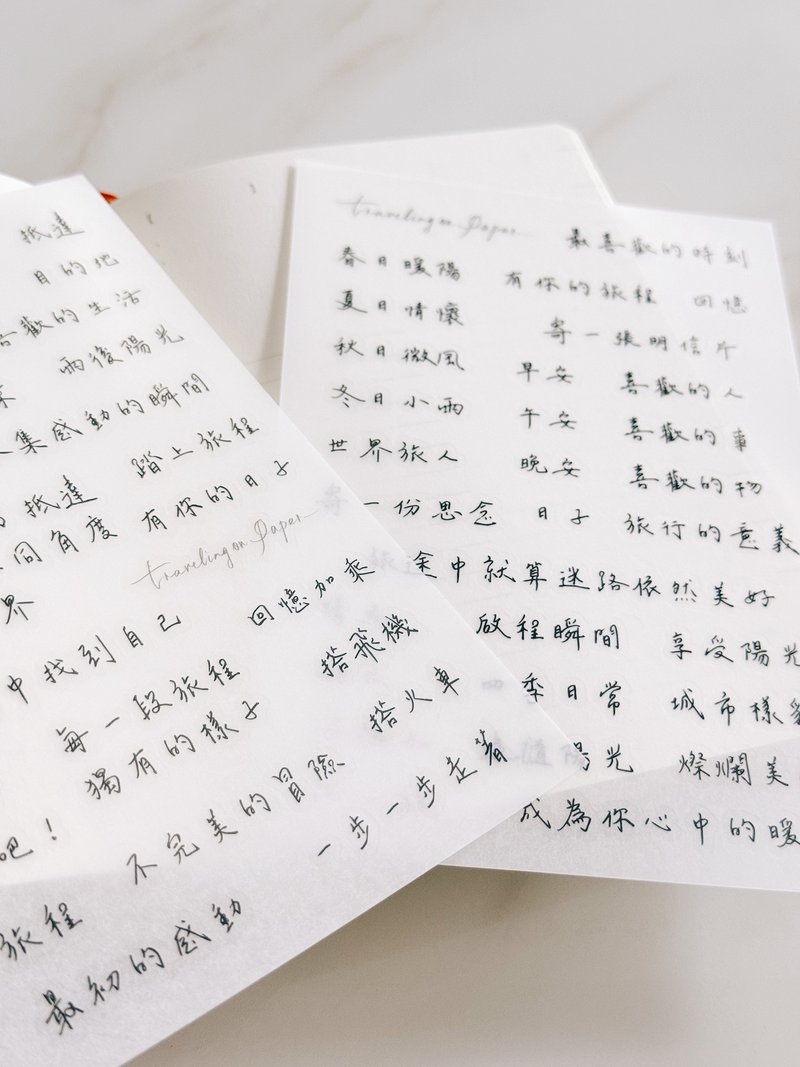 抵達
目的地
喜歡的生活
雨後陽光
集感動的瞬間
抵達 踏上旅程
同角度 有你的日子
travelingonpaper
界
中找到自己 回憶加乘
每一段旅程 搭飛機
獨有的樣子 搭火車
吧！ 不完美的冒險 一步一步走著
旅程
最初的感動
travelingonpaper 最喜歡的時刻
春日暖陽 有你的旅程 回憶
夏日情懷 寄一張明信片
秋日微風 早安 喜歡的人
冬日小雨 午安 喜歡的事
世界旅人 晚安 喜歡的物
寄一份思念 日子 旅行的意義
途中就算迷路依然美好
啟程瞬間 享受陽光
四季日常 城市樣
光 燦爛美
成為你心中的暖